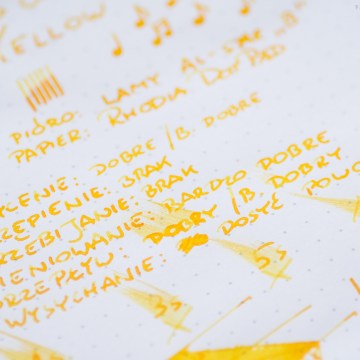 YELLOW
PIÓRO: LAMY AL-STAR "B"
PAPIER: RHODIA DOT PAD
YCENIE: DOBRE / B. DOBRE
RZĘPIENIE: BRAK
RZEBIJANIE: BRAK
IENIOWANIE: BARDZO DOBRE
RZEPŁYW: DOBRY / B. DOBRY
WYSYCHANIE: DOSYĆ POWO
3s 5s